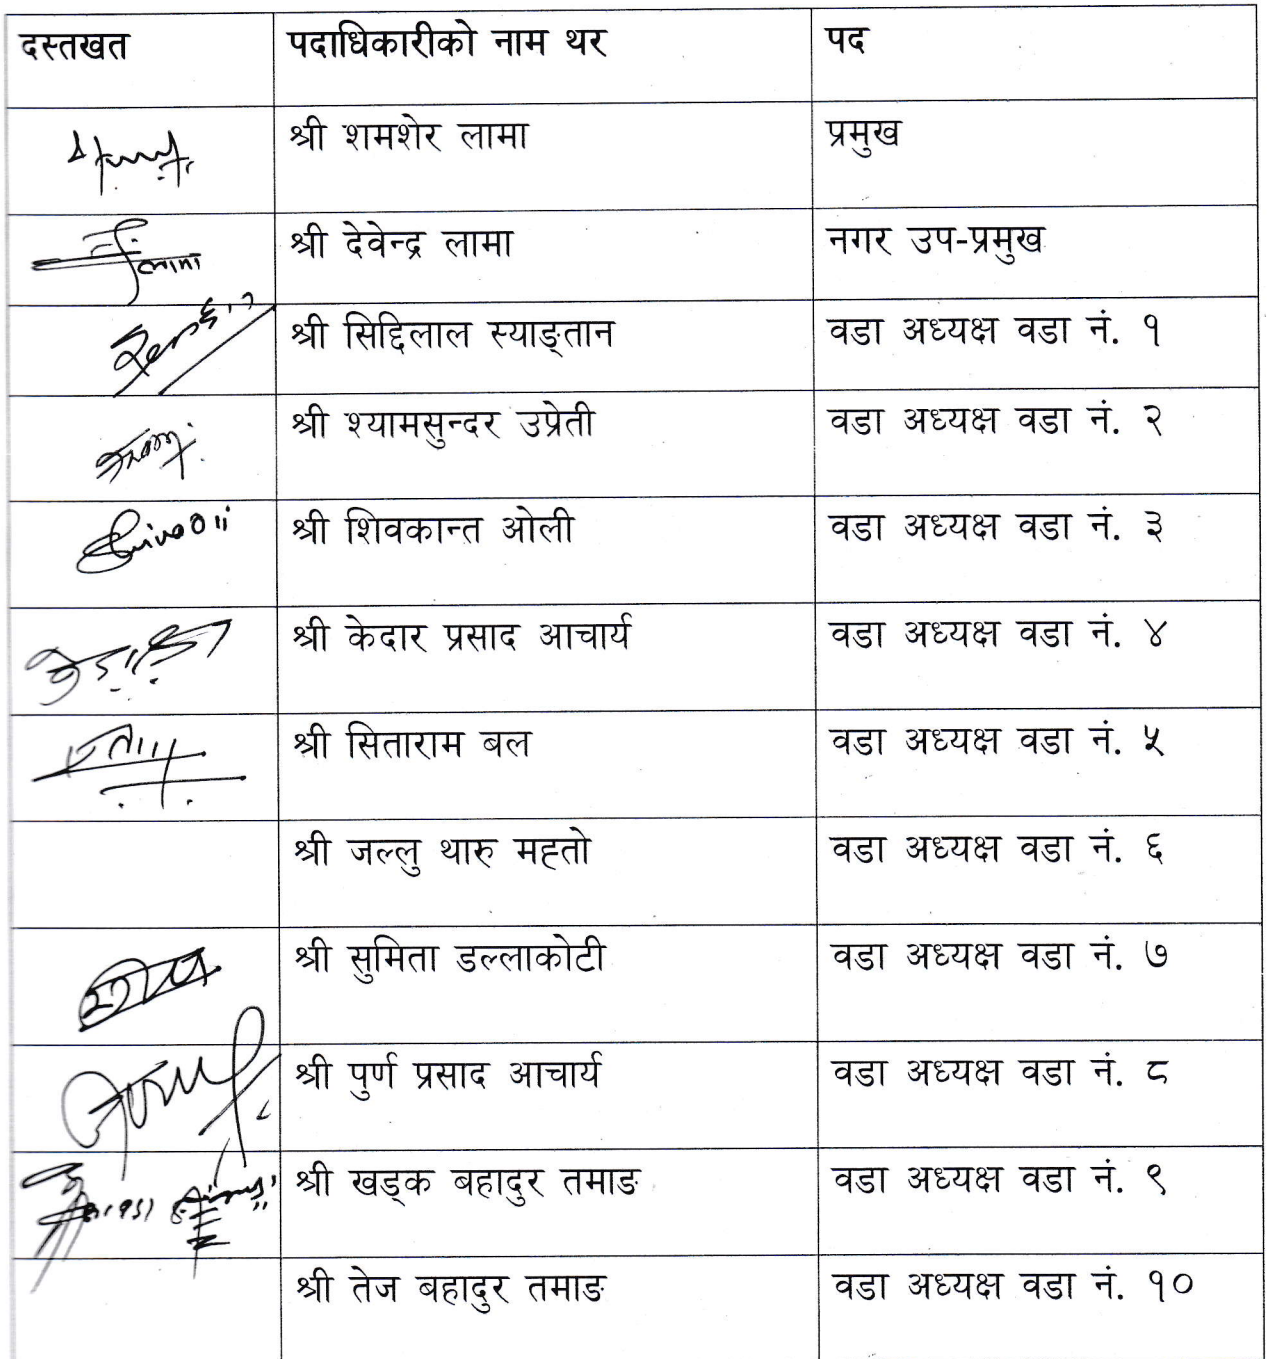 दस्तखत पदाधिकारीको नाम थर पद
श्री शमशेर लामा प्रमुख
लामा श्री देवेन्द्र लामा नगर उप-प्रमुख
श्री सिद्दिलाल स्याङ्तान वडा अध्यक्ष वडा नं. १
श्री श्यामसुन्दर उप्रेती वडा अध्यक्ष वडा नं. २
श्री शिवकान्त ओली वडा अध्यक्ष वडा नं. ३
श्री केदार प्रसाद आचार्य वडा अध्यक्ष वडा नं. ४
श्री सिताराम बल वडा अध्यक्ष वडा नं. ५
श्री जल्लु थारु महतो वडा अध्यक्ष वडा नं. ६
श्री सुमिता डल्लाकोटी वडा अध्यक्ष वडा नं. ७
श्री पुर्ण प्रसाद आचार्य वडा अध्यक्ष वडा नं. ८
श्री खड्क बहादुर तमाङ वडा अध्यक्ष वडा नं. ९
श्री तेज बहादुर तमाङ वडा अध्यक्ष वडा नं. १०